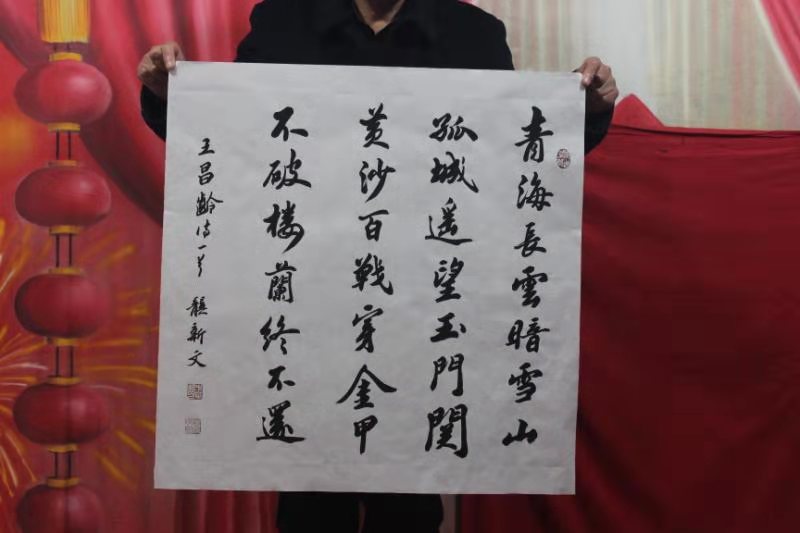 青海長雲暗雪山
孤城遥望玉門関
黄沙百戦穿金甲
不破楼蘭終不還
王昌齢诗一首
新文